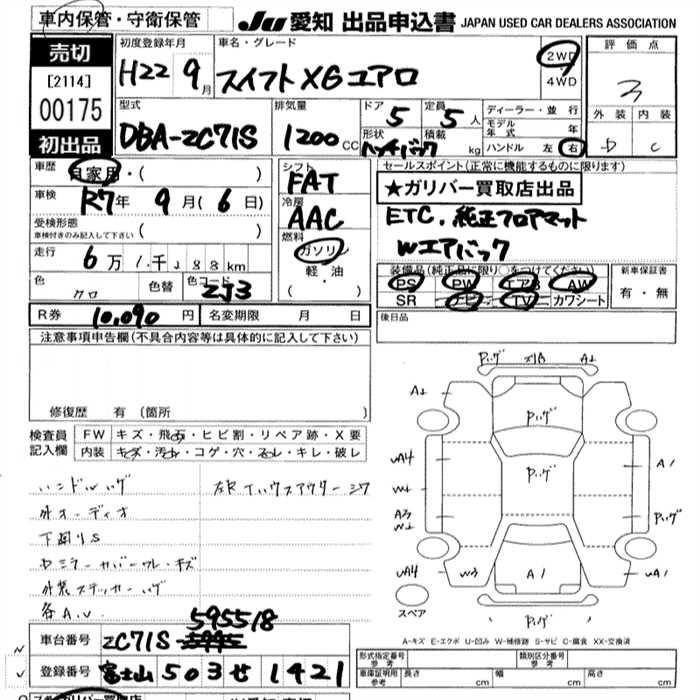 車内保管・守衛保管
JU 愛知 出品申込書 JAPAN USED CAR DEALERS ASSOCIATION
売切
[2114]
00175
初出品
初度登録年月
H22 9月
車名・グレード
スイフト XG エアロ
2WD
・
4WD
評価点
3
外装 内装
D C
型式
DBA-ZC71S
排気量
1200 CC
ドア 5
定員 5 人
形状 ハッチバック
積載 kg
ディーラー・並行
モデル年式 年
ハンドル 左 右
車歴 自家用・( )
車検 R7年 9月(6日)
受検形態
車検付きのみ記入して下さい ( )
走行 6万 1千 288km
色 クロ 色替 色コード ZJ3
シフト FAT
冷房 AAC
燃料
ガソリン
軽・油
( ・ )
セールスポイント(正常に機能するものに限ります)
★ガリバー買取店出品
ETC.純正フロアマット
Wエアバック
装備品(純正品に限り○をつけてください)
PS PW エアB AW
SR ナビ TV カワシート
新車保証書
有・無
R券 10,090 円 名変期限 月 日
後日品
注意事項申告欄(不具合内容等は具体的に記入して下さい)
修復歴 有 (箇所 )
検査員記入欄
FW キズ・飛石・ヒビ割・リペア跡・X要
内装 キズ・汚れ・コゲ・穴・スレ・キレ・破レ
ハンドルハゲ
外オーディオ
下廻りS
外装ステッカーハゲ
各A.U.
P.ハゲ 刈B A↓
A↓
P.ハゲ
P.ハゲ
UA4
W↓
A3
W↓
UA4
W3
A1
A1
P.ハゲ
UA1
P.ハゲ
スペア
A-キズ E-エクボ U-凹み W-補修跡 S-サビ C-腐食 XX-交換済
車台番号 ZC71S-595518
登録番号 富士山 503 せ 1421
形式指定番号
参考
類別区分番号
参考
車庫証明用
参考
長さ cm
幅 cm
高さ cm